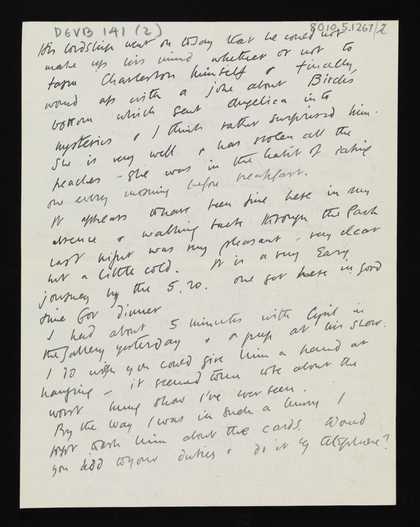 DGVB 141 (2)
8010.5.1261/2
His Lordship went on to say that he could not
make up his mind whether or not to
farm Charleston himself & finally
wound up with a joke about Birdie's
bottom which sent Angelica into
hysterics & I think rather surprised him.
She is very well & has stolen all the
peaches – she was in the habit of eating
one every morning before breakfast.
It appears to have been fine here in my
absence & walking back through the Park
last night was very pleasant – very clear
but a little cold. It is a very easy
journey by the 5.20. One got here in good
time for dinner
I had about 5 minutes with in
the Gallery yesterday & a peep at his show.
I do wish you could give him a hand at
hanging – it seemed to me about the
worst hung show I've ever seen.
By the way I was in such a hurry I
forgot to ask him about the cards. Would
you add to your duties & do it by telephone?